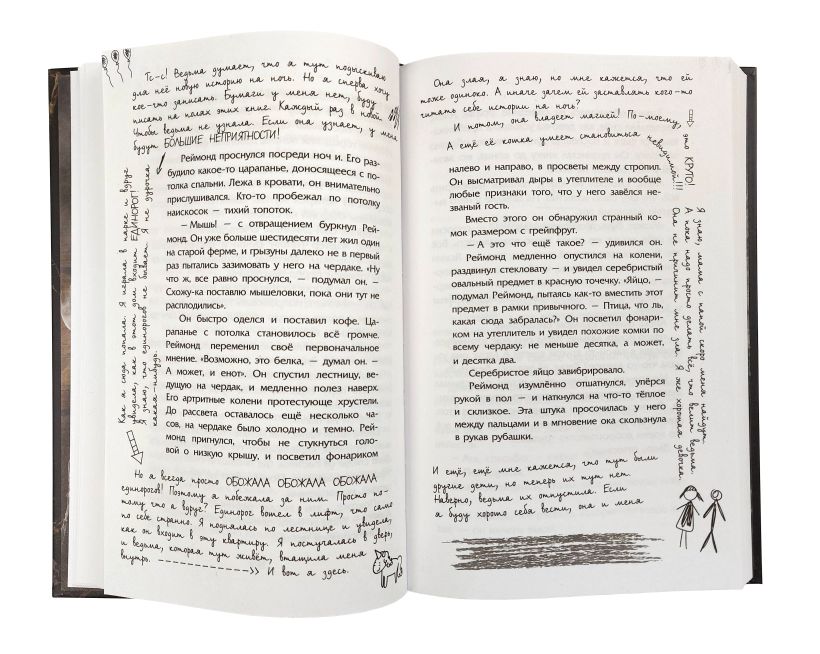 Тс-с! Ведьма думает, что я тут подыскиваю
для неё новую историю на ночь. Но я сперва хочу
кое-что записать. Бумаги у меня нет, буду
писать на полях этих книг. Каждый раз в новой.
Чтобы ведьма не узнала. Если она узнает, у меня
будут БОЛЬШИЕ НЕПРИЯТНОСТИ!
Как я сюда попала. Я играла в парке и вдруг
увидела, как в этот дом входит ЕДИНОРОГ!
Я знаю, что единорогов не бывает. Я не дурочка
какая-нибудь.
Реймонд проснулся посреди ночи. Его раз-
будило какое-то царапанье, доносящееся с по-
толка спальни. Лежа в кровати, он внимательно
прислушивался. Кто-то пробежал по потолку
наискосок — тихий топоток.
— Мышь! — с отвращением буркнул Рей-
монд. Он уже больше шестидесяти лет жил один
на старой ферме, и грызуны далеко не в первый
раз пытались зазимовать у него на чердаке. «Ну
что ж, все равно проснулся, — подумал он. —
Схожу-ка поставлю мышеловки, пока они тут не
расплодились».
Он быстро оделся и поставил кофе. Ца-
рапанье с потолка становилось всё громче.
Реймонд переменил своё первоначальное
мнение. «Возможно, это белка, — думал он. —
А может, и енот». Он спустил лестницу, ве-
дущую на чердак, и медленно полез наверх.
Его артритные колени протестующе хрустели.
До рассвета оставалось ещё несколько ча-
сов, на чердаке было холодно и темно. Рей-
монд пригнулся, чтобы не стукнуться голо-
вой о низкую крышу, и посветил фонариком
Но я всегда просто ОБОЖАЛА ОБОЖАЛА ОБОЖАЛА
единорогов! Поэтому я побежала за ним. Просто по-
тому что а вдруг? Единорог вошел в лифт, что само
по себе странно. Я поднялась по лестнице и увидела,
как он входит в эту квартиру. Я постучалась в дверь,
и ведьма, которая тут живёт, втащила меня
внутрь. И вот я здесь.
Она злая, я знаю, но мне кажется, что ей
тоже одиноко. А иначе зачем ей заставлять кого-то
читать себе истории на ночь?
И потом, она владеет магией! По-моему, это КРУТО!
А ещё её кошка умеет становиться невидимой!!!!
налево и направо, в просветы между стропил.
Он высматривал дыры в утеплителе и вообще
любые признаки того, что у него завёлся не-
званый гость.
Вместо этого он обнаружил странный ко-
мок размером с грейпфрут.
— А это что ещё такое? — удивился он.
Реймонд медленно опустился на колени,
раздвинул стекловату — и увидел серебристый
овальный предмет в красную точечку. «Яйцо, —
подумал Реймонд, пытаясь как-то вместить этот
предмет в рамки привычного. — Птица, что ль,
какая сюда забралась?» Он посветил фонари-
ком на утеплитель и увидел похожие комки по
всему чердаку: не меньше десятка, а может,
и десятка два.
Серебристое яйцо завибрировало.
Реймонд изумлённо отшатнулся, упёрся
рукой в пол — и наткнулся на что-то тёплое
и склизкое. Эта штука просочилась у него
между пальцами и в мгновение ока скользнула
в рукав рубашки.
Я знаю, мама с папой скоро меня найдут.
А пока надо просто делать всё, что велит ведьма.
Она не причинит мне зла. Я же хорошая девочка.
И ещё, ещё мне кажется, что тут были
другие дети, но теперь их тут нет.
Наверно, ведьма их отпустила. Если
я буду хорошо себя вести, она и меня